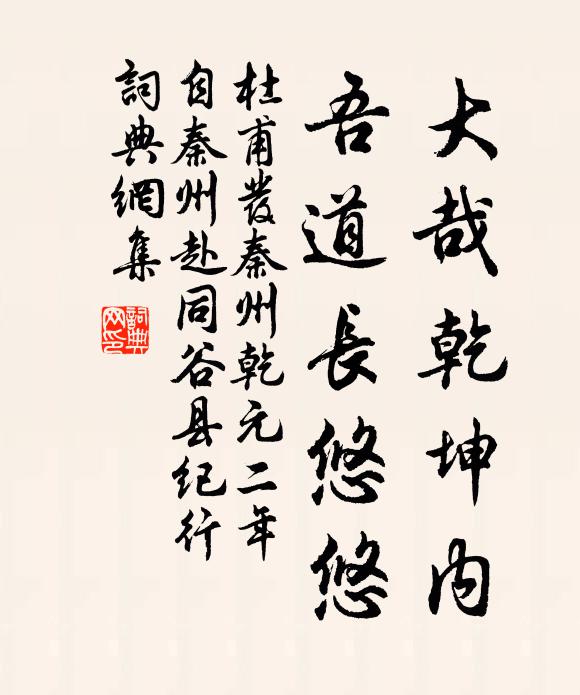 大哉乾坤内
吾道長悠悠
杜甫發秦州乾元二年
自秦州赴同谷县纪行
詞典網集
詞典网印